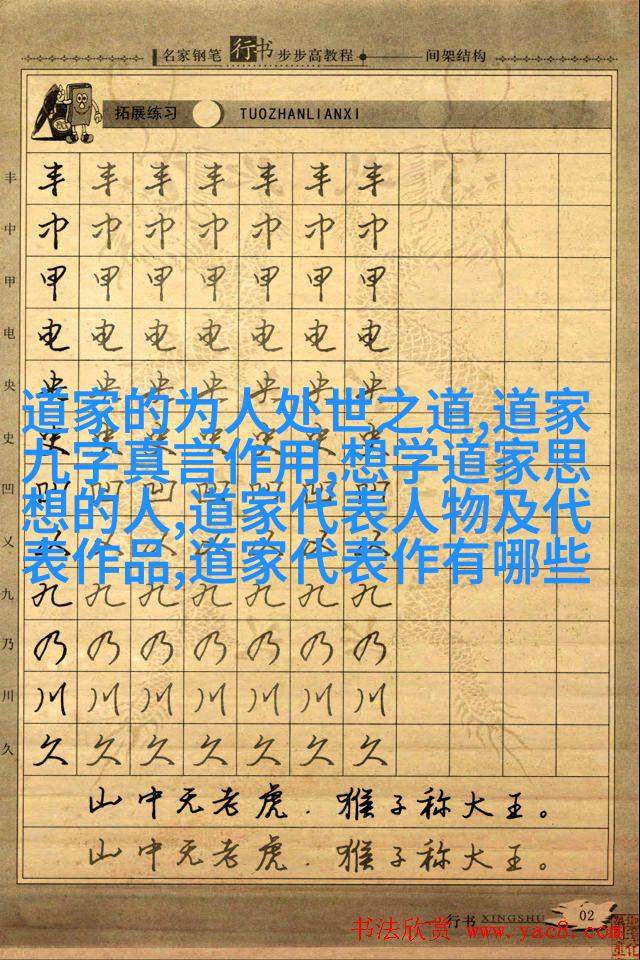 名家钢笔行书步步高教程 间架结构
拓展练习 TUOZHANLIANXI
丰 丰 丰 丰 丰 丰 丰 丰
中 中 中 中 中 中 中 中
甲 甲 甲 甲 甲 甲 甲 甲
电 电 电 电 电 电 电 电
央 央 央 央 央 央 央 央
道家的为人处世之道,道家
史 史 史 史 史 史 史 史
九字真言作用,想学道家思
凹 凹 凹 凹 凹 凹 凹 凹
想的人,道家代表人物及代
乂
表作品,道家代表作有哪些
九 九 九 九 九 九 九 九
乃 乃 乃 乃 乃 乃 乃 乃
川 川 川 川 川 川 川 川
久 久 久 久 久 久 久 久
山中无老虎.猴子称大王。
山中无老虎.猴子称大王。
行书 XINGSHU 02
书法欣赏 www.yac8.com